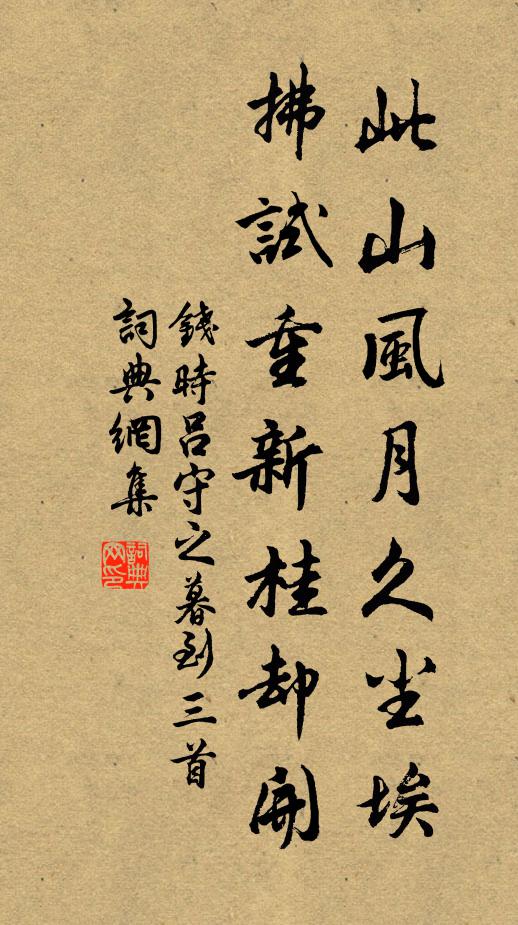 此山風月久尘埃
拂試重新桂却開
錢時呂守之暮到三首
詞典網集
詞典网印